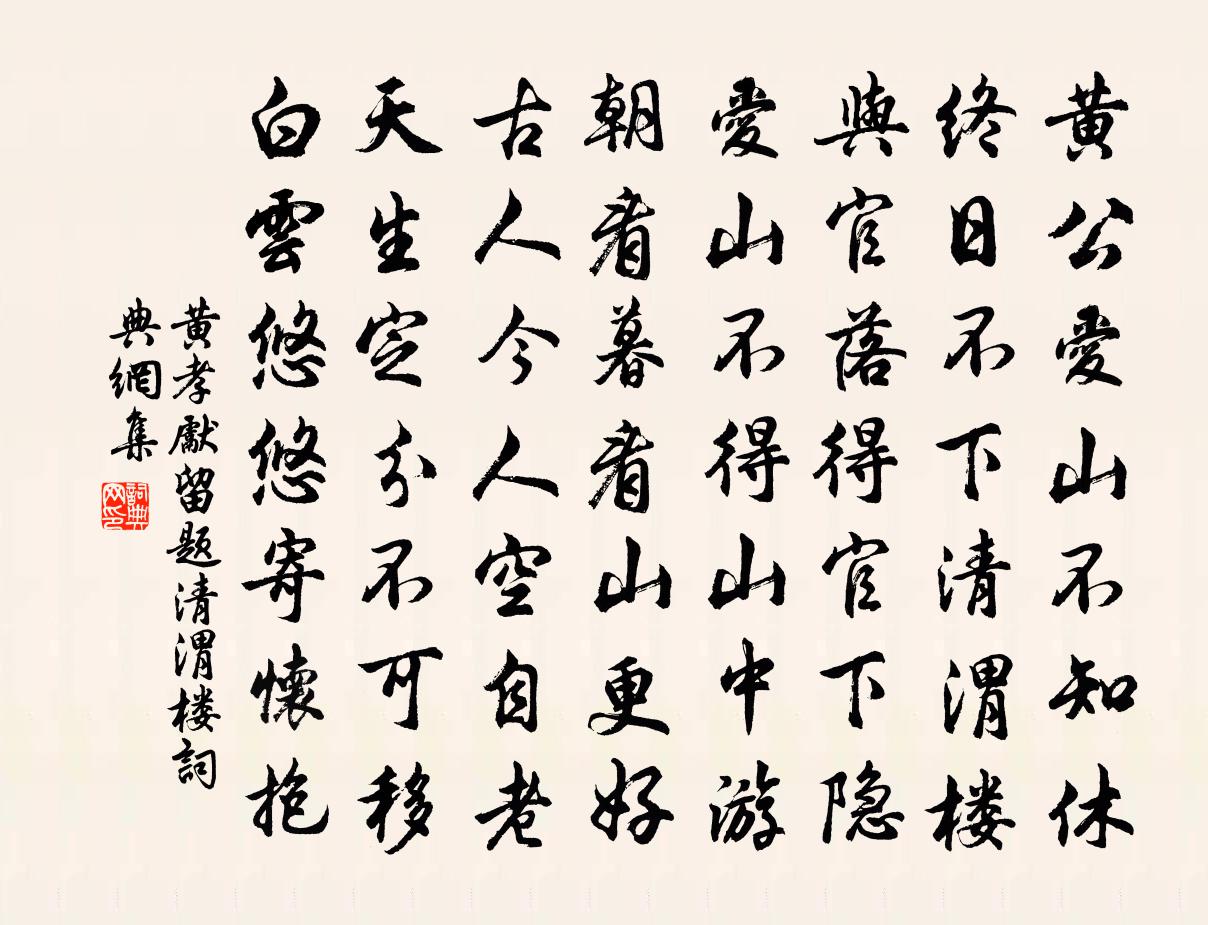 黃公愛山不知休
終日不下清渭楼
與官落得官下隐
愛山不得山中游
朝看暮看山更好
古人今人空自老
天生定分不可移
白雲悠悠寄懷抱
黃孝獻留题清渭楼詞
典網集
詞典
网印